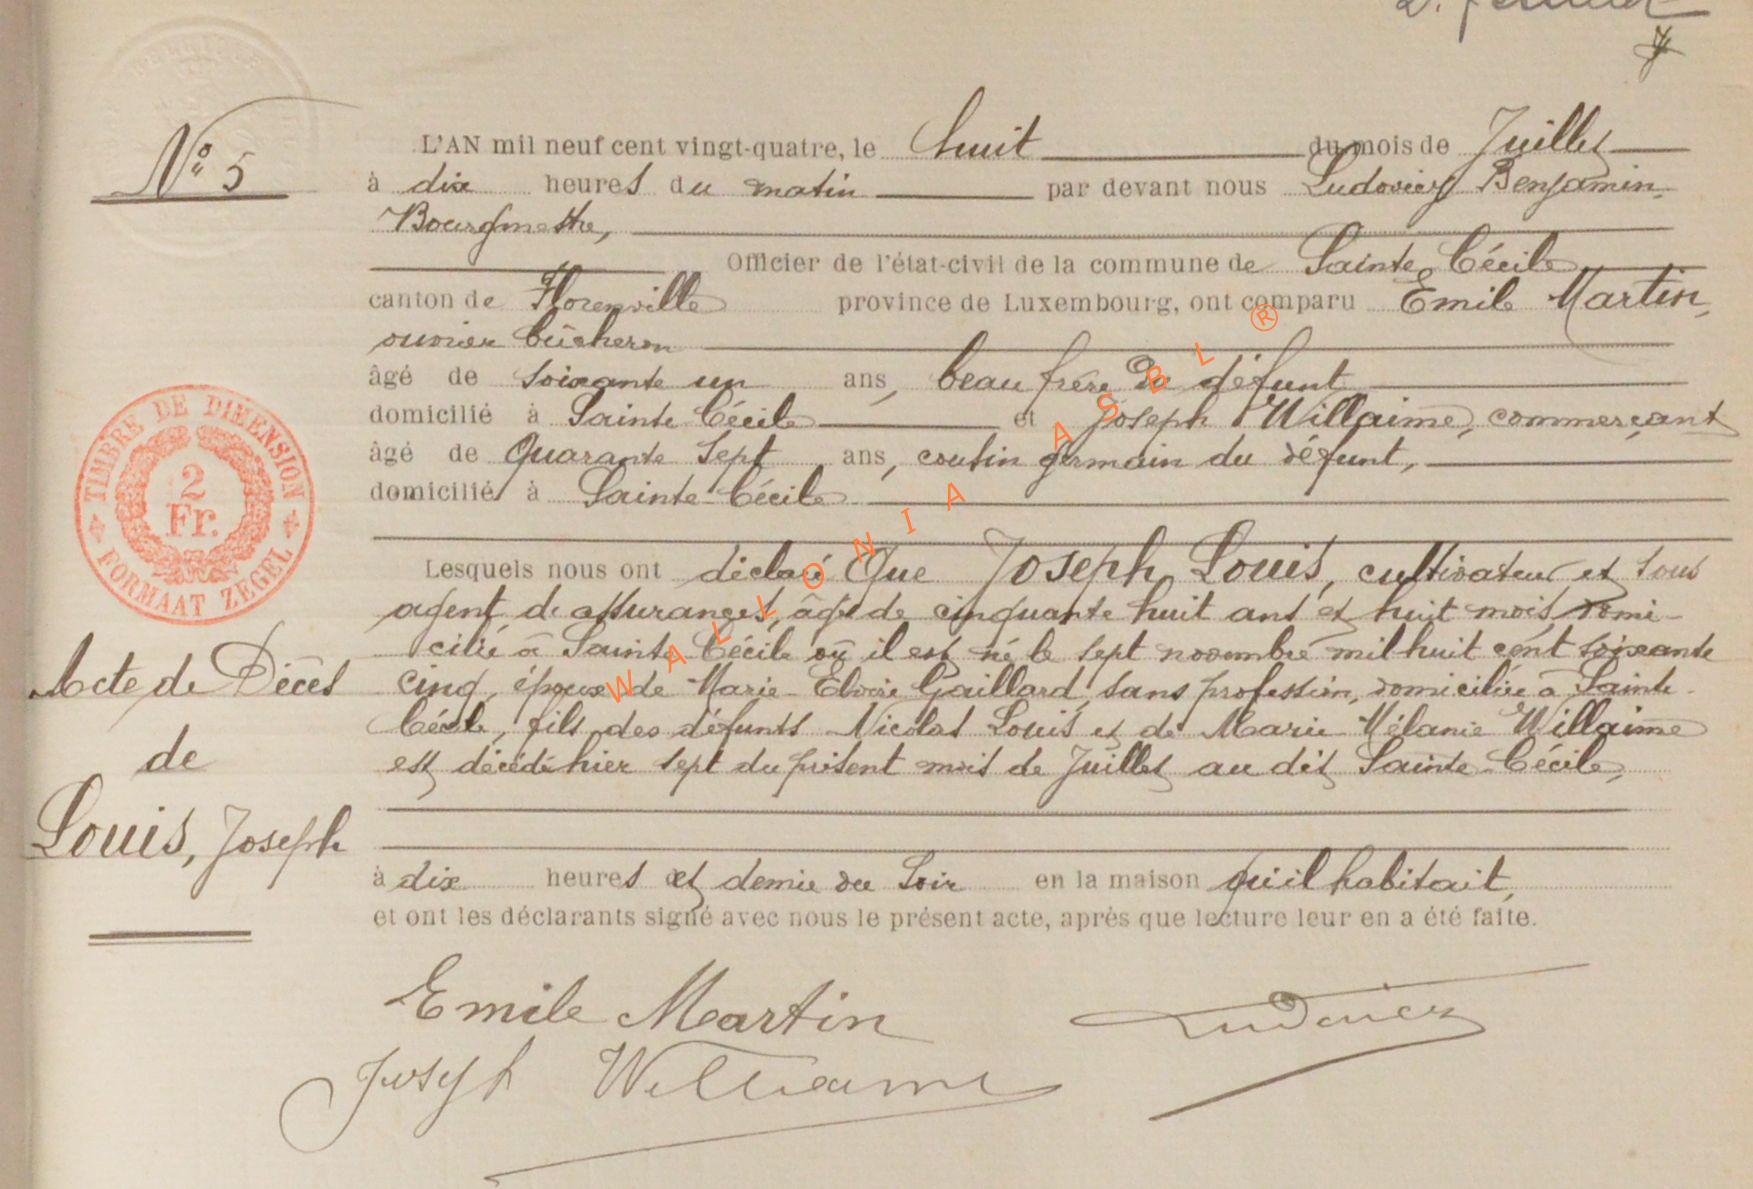 Nº 5
L'AN mil neuf cent vingt-quatre, le huit du mois de Juillet
à dix heures du matin par devant nous Ludovicy Benjamin,
Bourgmestre,
Officier de l'état-civil de la commune de Sainte Cécile
canton de Florenville province de Luxembourg, ont comparu Emile Martin,
ouvrier bûcheron
âgé de soixante un ans, beau frère du défunt
domicilié à Sainte Cécile et Joseph Willaime, commerçant
âgé de Quarante sept ans, cousin germain du défunt,
domicilié à Sainte-Cécile
Lesquels nous ont déclaré Que Joseph Louis, cultivateur et sous
agent d'assurances, âgé de cinquante huit ans et huit mois, domi-
cilié à Sainte Cécile où il est né le sept novembre mil huit cent soixante
cinq, époux de Marie-Elvire Gaillard, sans profession, domiciliée à Sainte-
Cécile, fils des défunts Nicolas Louis et de Marie Mélanie Willaime
est décédé hier sept du présent mois de Juillet au dit Sainte-Cécile,
à dix heures et demie du soir en la maison qu'il habitait,
et ont les déclarants signé avec nous le présent acte, après que lecture leur en a été faite.
Acte de Décès
de
Louis, Joseph
TIMBRE DE DIMENSION
2
Fr.
FORMAAT ZEGEL
Emile Martin
Ludovicy
Joseph Willaime
WALLONIA ASBL ®